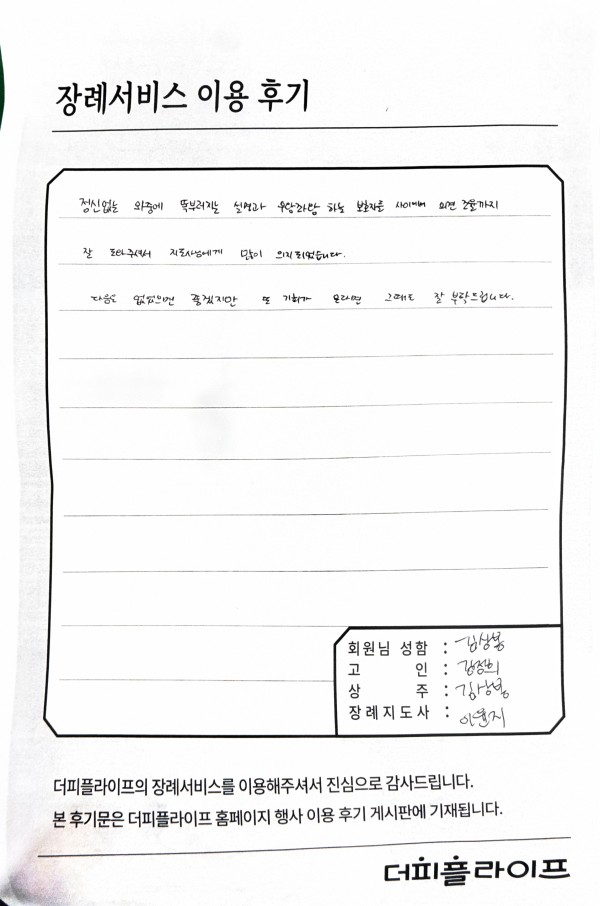 장례서비스 이용 후기
정신없는 와중에 똑부러지는 설명과 우왕좌왕 하는 보호자들 사이에서 의견 조율까지
잘 도와주셔서 지도사님에게 많이 의지되었습니다.
다음은 없었으면 좋겠지만 또 기회가 온다면 그때도 잘 부탁드립니다.
회원님 성함 : 김상봉
고 인 :
상 주 : 김상봉
장례지도사 : 안윤지
더피플라이프의 장례서비스를 이용해주셔서 진심으로 감사드립니다.
본 후기문은 더피플라이프 홈페이지 행사 이용 후기 게시판에 기재됩니다.
더피플라이프